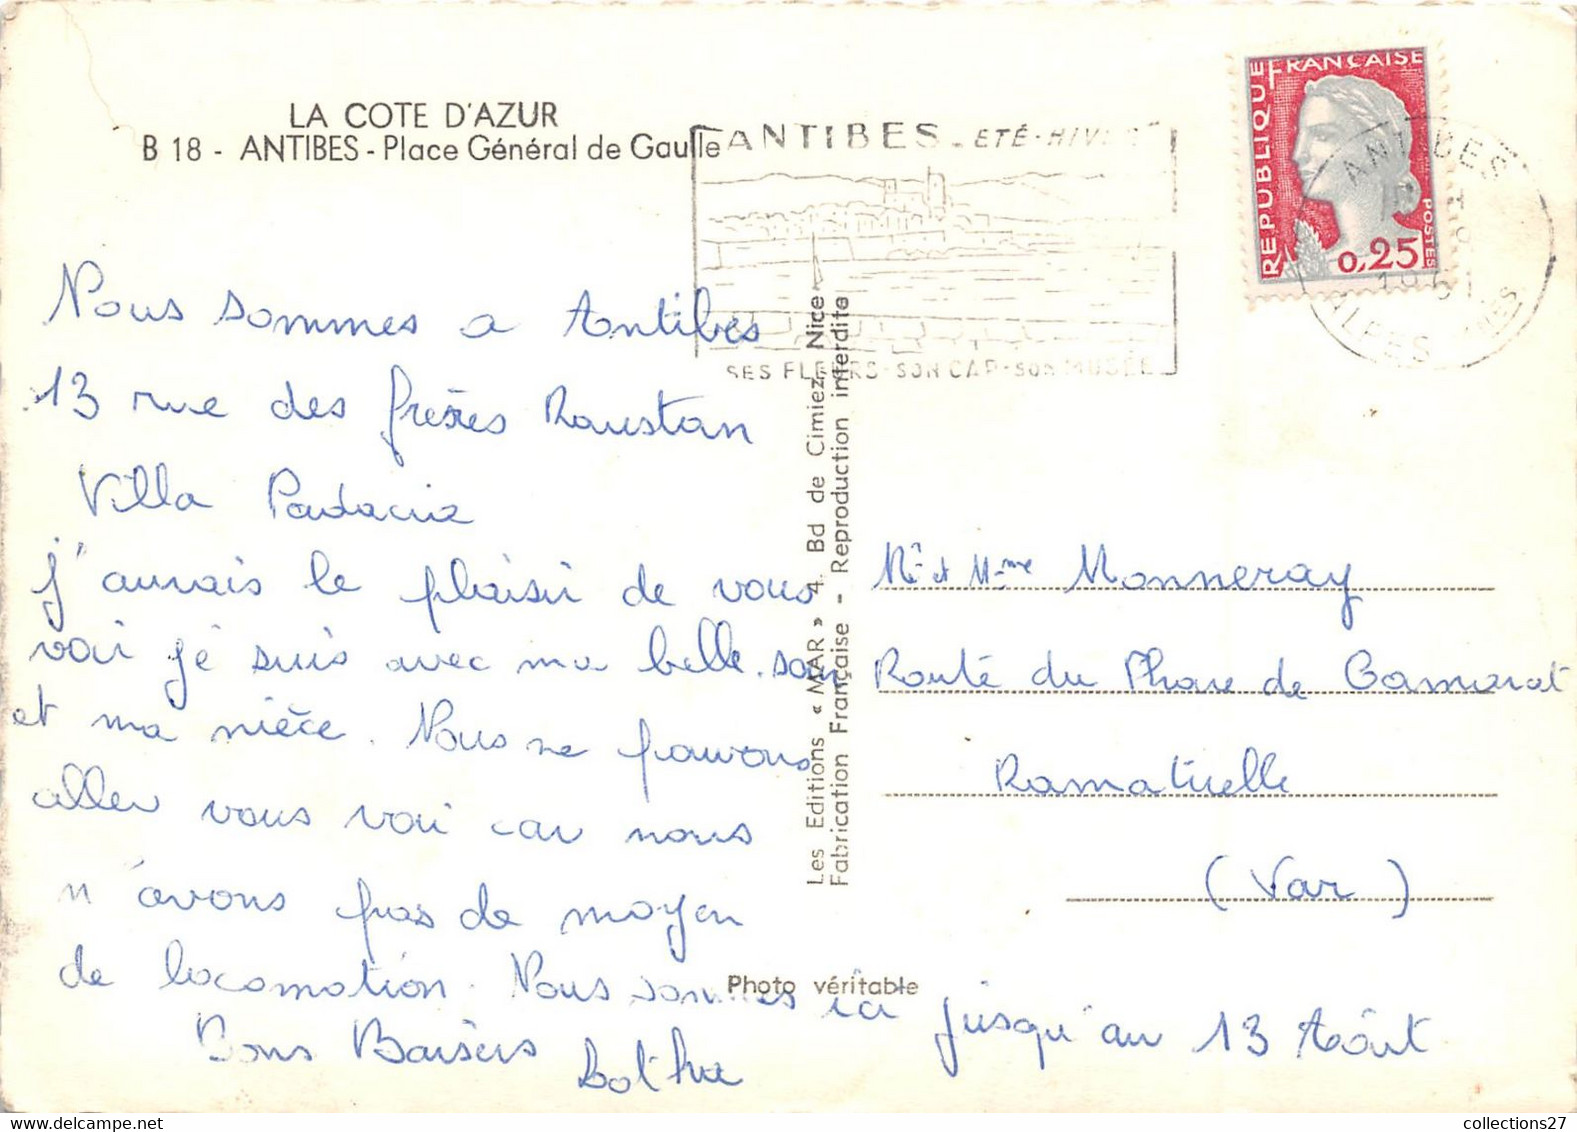 LA COTE D'AZUR
B 18 - ANTIBES - Place Général de Gaulle
ANTIBES - ETÉ - HIVER
SES FLEURS - SON CAP - SON MUSÉE
REPUBLIQUE FRANÇAISE
POSTES
0,25
ANTIBES
1961
ALPES
Nous sommes a Antibes
13 rue des frères Roustan
Villa
j'aurais le plaisir de vous
voir je suis avec ma belle-sœur
et ma nièce. Nous ne pouvons
aller vous voir car nous
n'avons pas de moyen
de locomotion. Nous sommes ici jusqu'au 13 Aôut
Bons Baisers
Les Editions « MAR » 4, Bd de Cimiez, Nice
Fabrication Française - Reproduction interdite
Photo véritable
Mr et Mme Monneray
Route du Phare de Camarat
Ramatuelle
(Var)
collections27